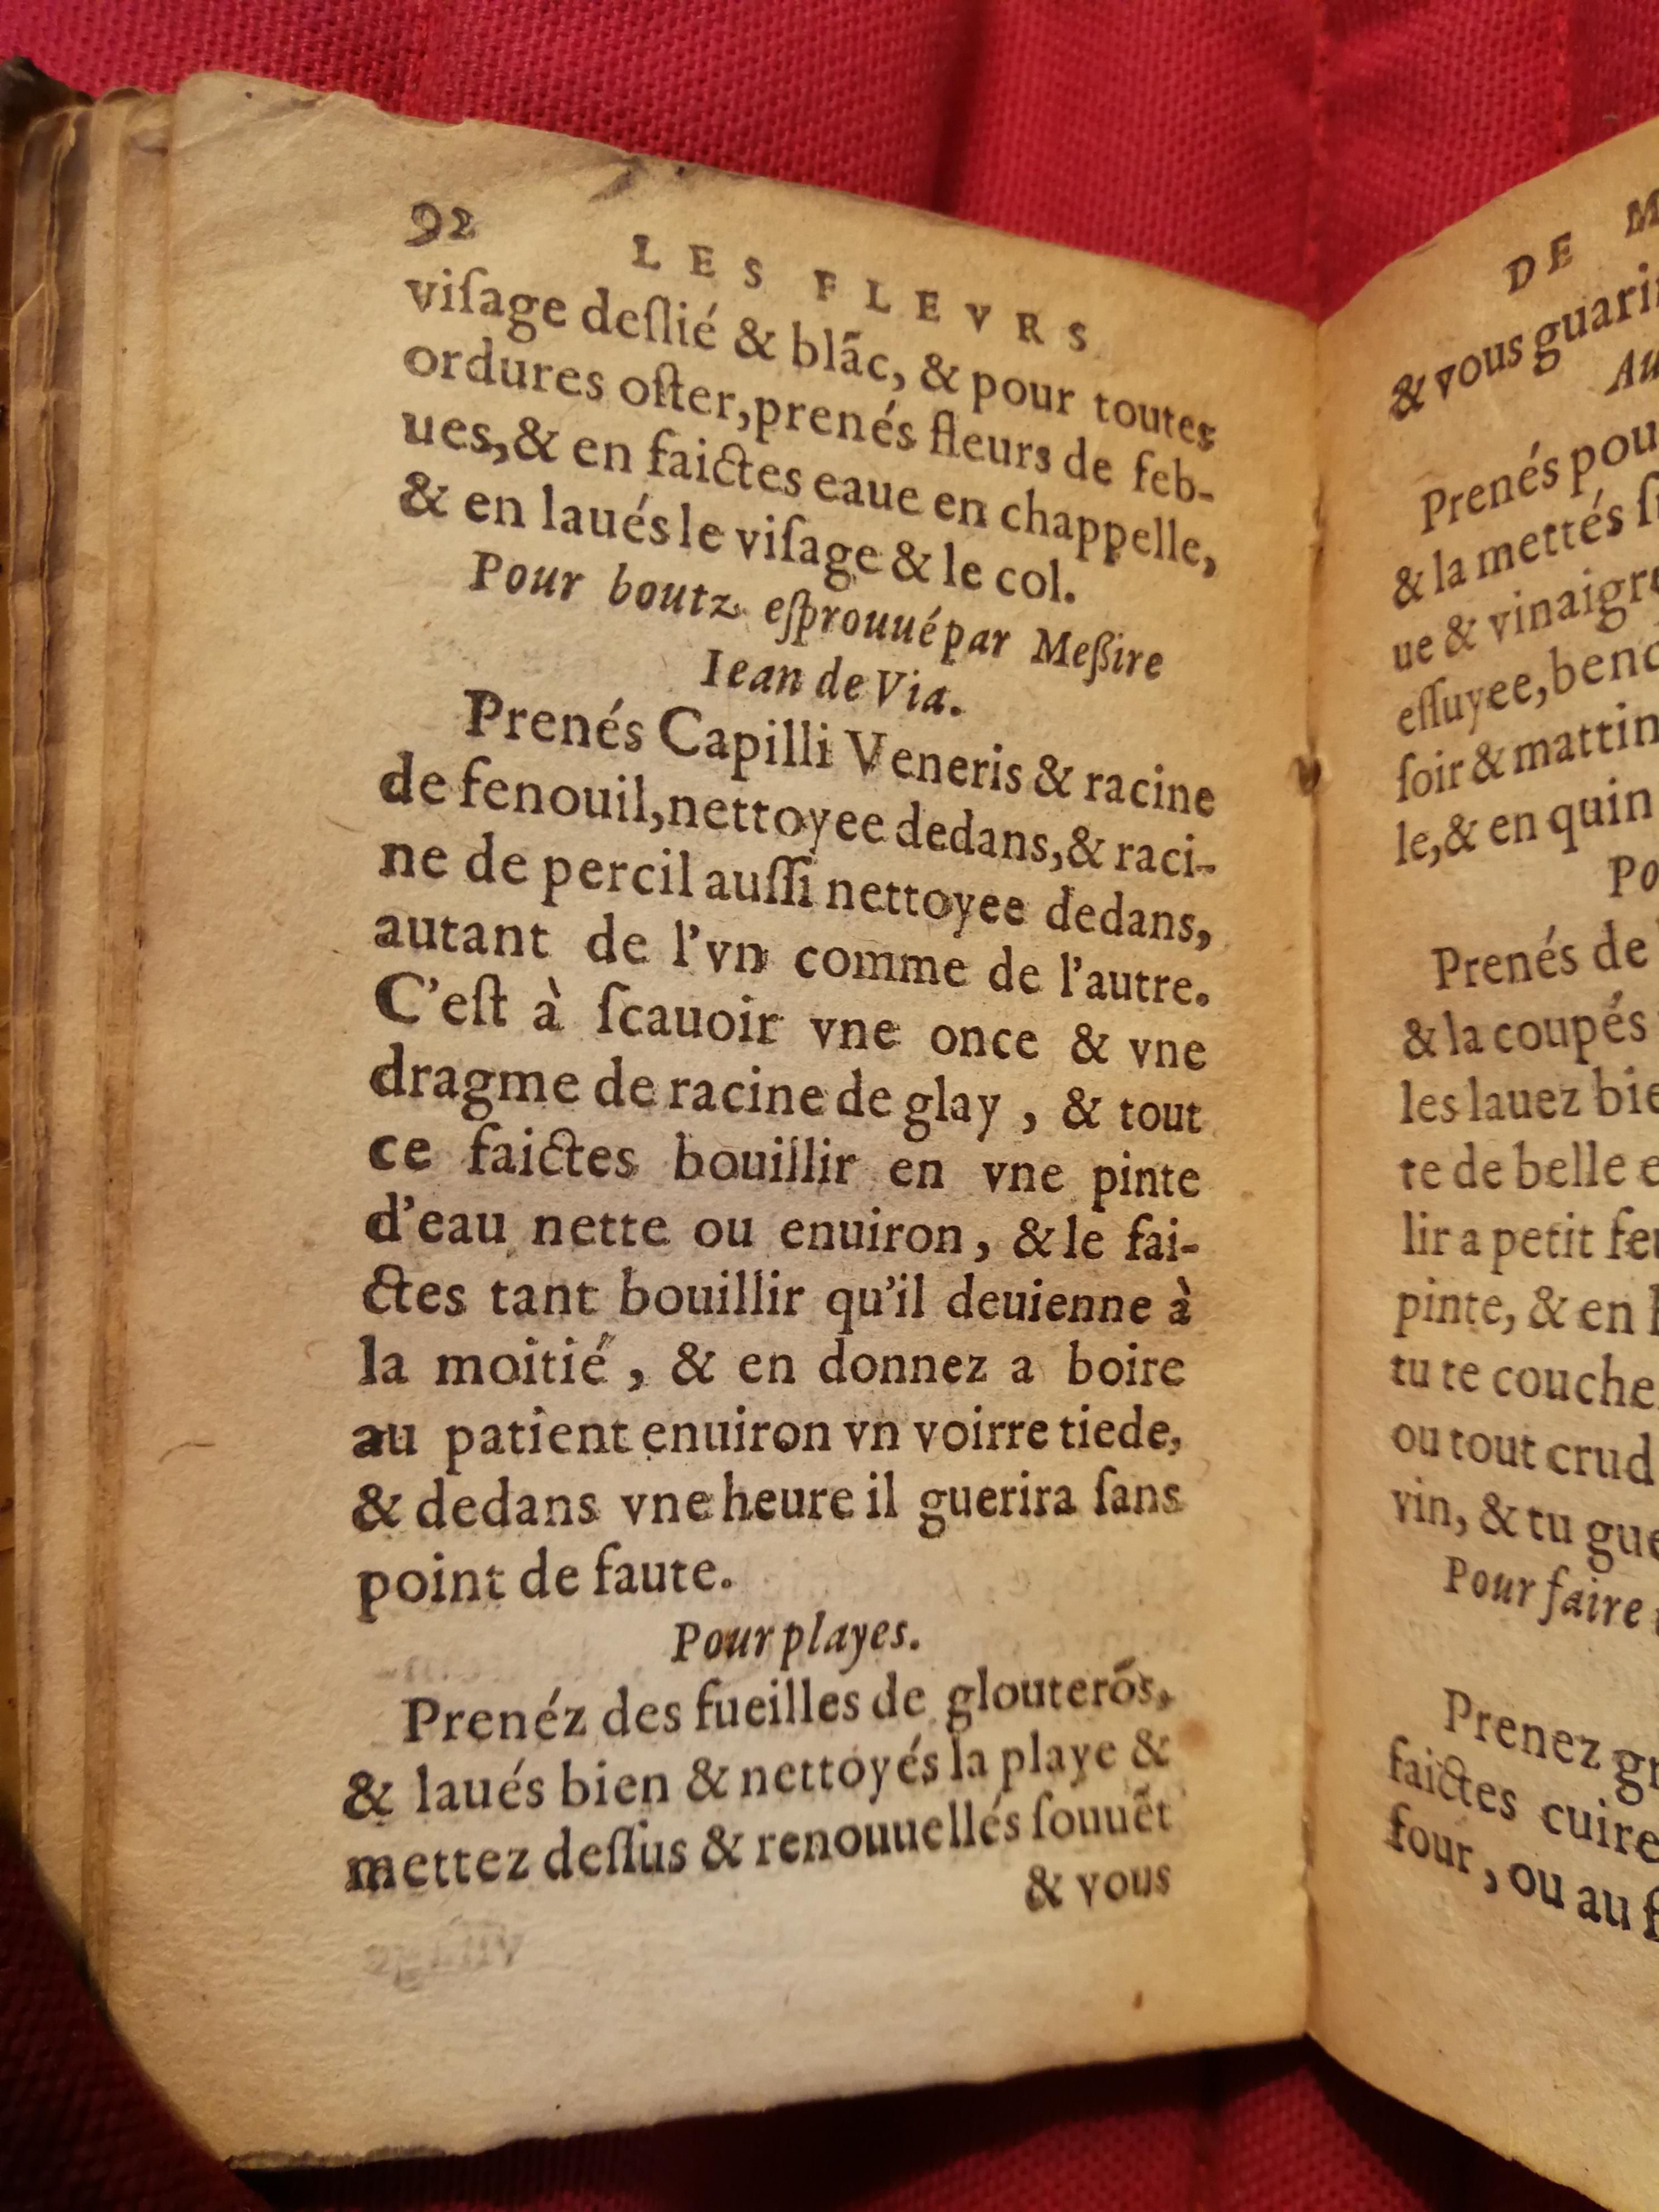 92
LES FLEVRS
viſage deſlié & blãc, & pour toutes
ordures oſter, prenés fleurs de feb-
ues, & en faictes eaue en chappelle,
& en laués le viſage & le col.
Pour boutz eſprouué par Meßire
Iean de Via.
Prenés Capilli Veneris & racine
de fenouil, nettoyee dedans, & raci-
ne de percil auſſi nettoyee dedans,
autant de l'vn comme de l'autre.
C'eſt à ſcauoir vne once & vne
dragme de racine de glay, & tout
ce faictes bouillir en vne pinte
d'eau nette ou enuiron, & le fai-
ctes tant bouillir qu'il deuienne à
la moitié, & en donnez a boire
au patient enuiron vn voirre tiede,
& dedans vne heure il guerira ſans
point de faute.
Pour playes.
Prenéz des fueilles de glouterõs,
& laués bien & nettoyés la playe &
mettez deſſus & renouuellés ſouuẽt
& vous
DE
& vous
Prenés
& la mettés
ue &
eſſuyee,
ſoir & mattin
le, & en
Prenés de
& la coupés
les lauez
te de belle
lir a petit
pinte, & en
tu te
ou tout crud
vin, & tu
Pour faire
Prenez
faictes cuire
four, ou au